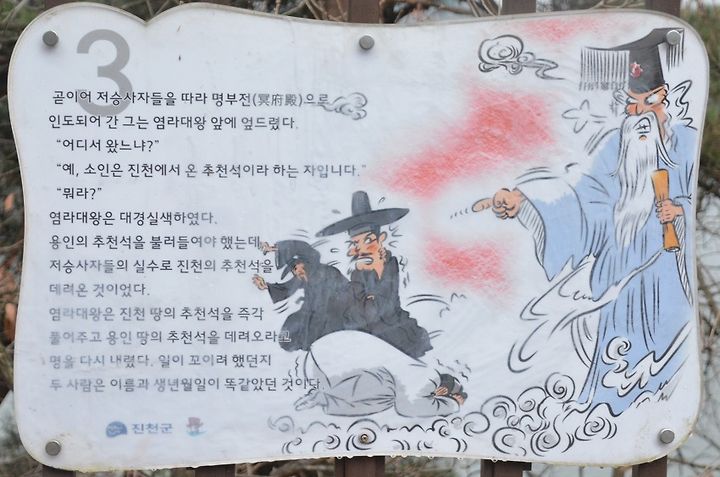 3
곧이어 저승사자들을 따라 명부전(冥府殿)으로
인도되어 간 그는 염라대왕 앞에 엎드렸다.
“어디서 왔느냐?”
“예, 소인은 진천에서 온 추천석이라 하는 자입니다.”
“뭐라?”
염라대왕은 대경실색하였다.
용인의 추천석을 불러들여야 했는데
저승사자들의 실수로 진천의 추천석을
데려온 것이었다.
염라대왕은 진천 땅의 추천석을 즉각
풀어주고 용인 땅의 추천석을 데려오라고
명을 다시 내렸다. 일이 꼬이려 했던지
두 사람은 이름과 생년월일이 똑같았던 것이다.
진천군